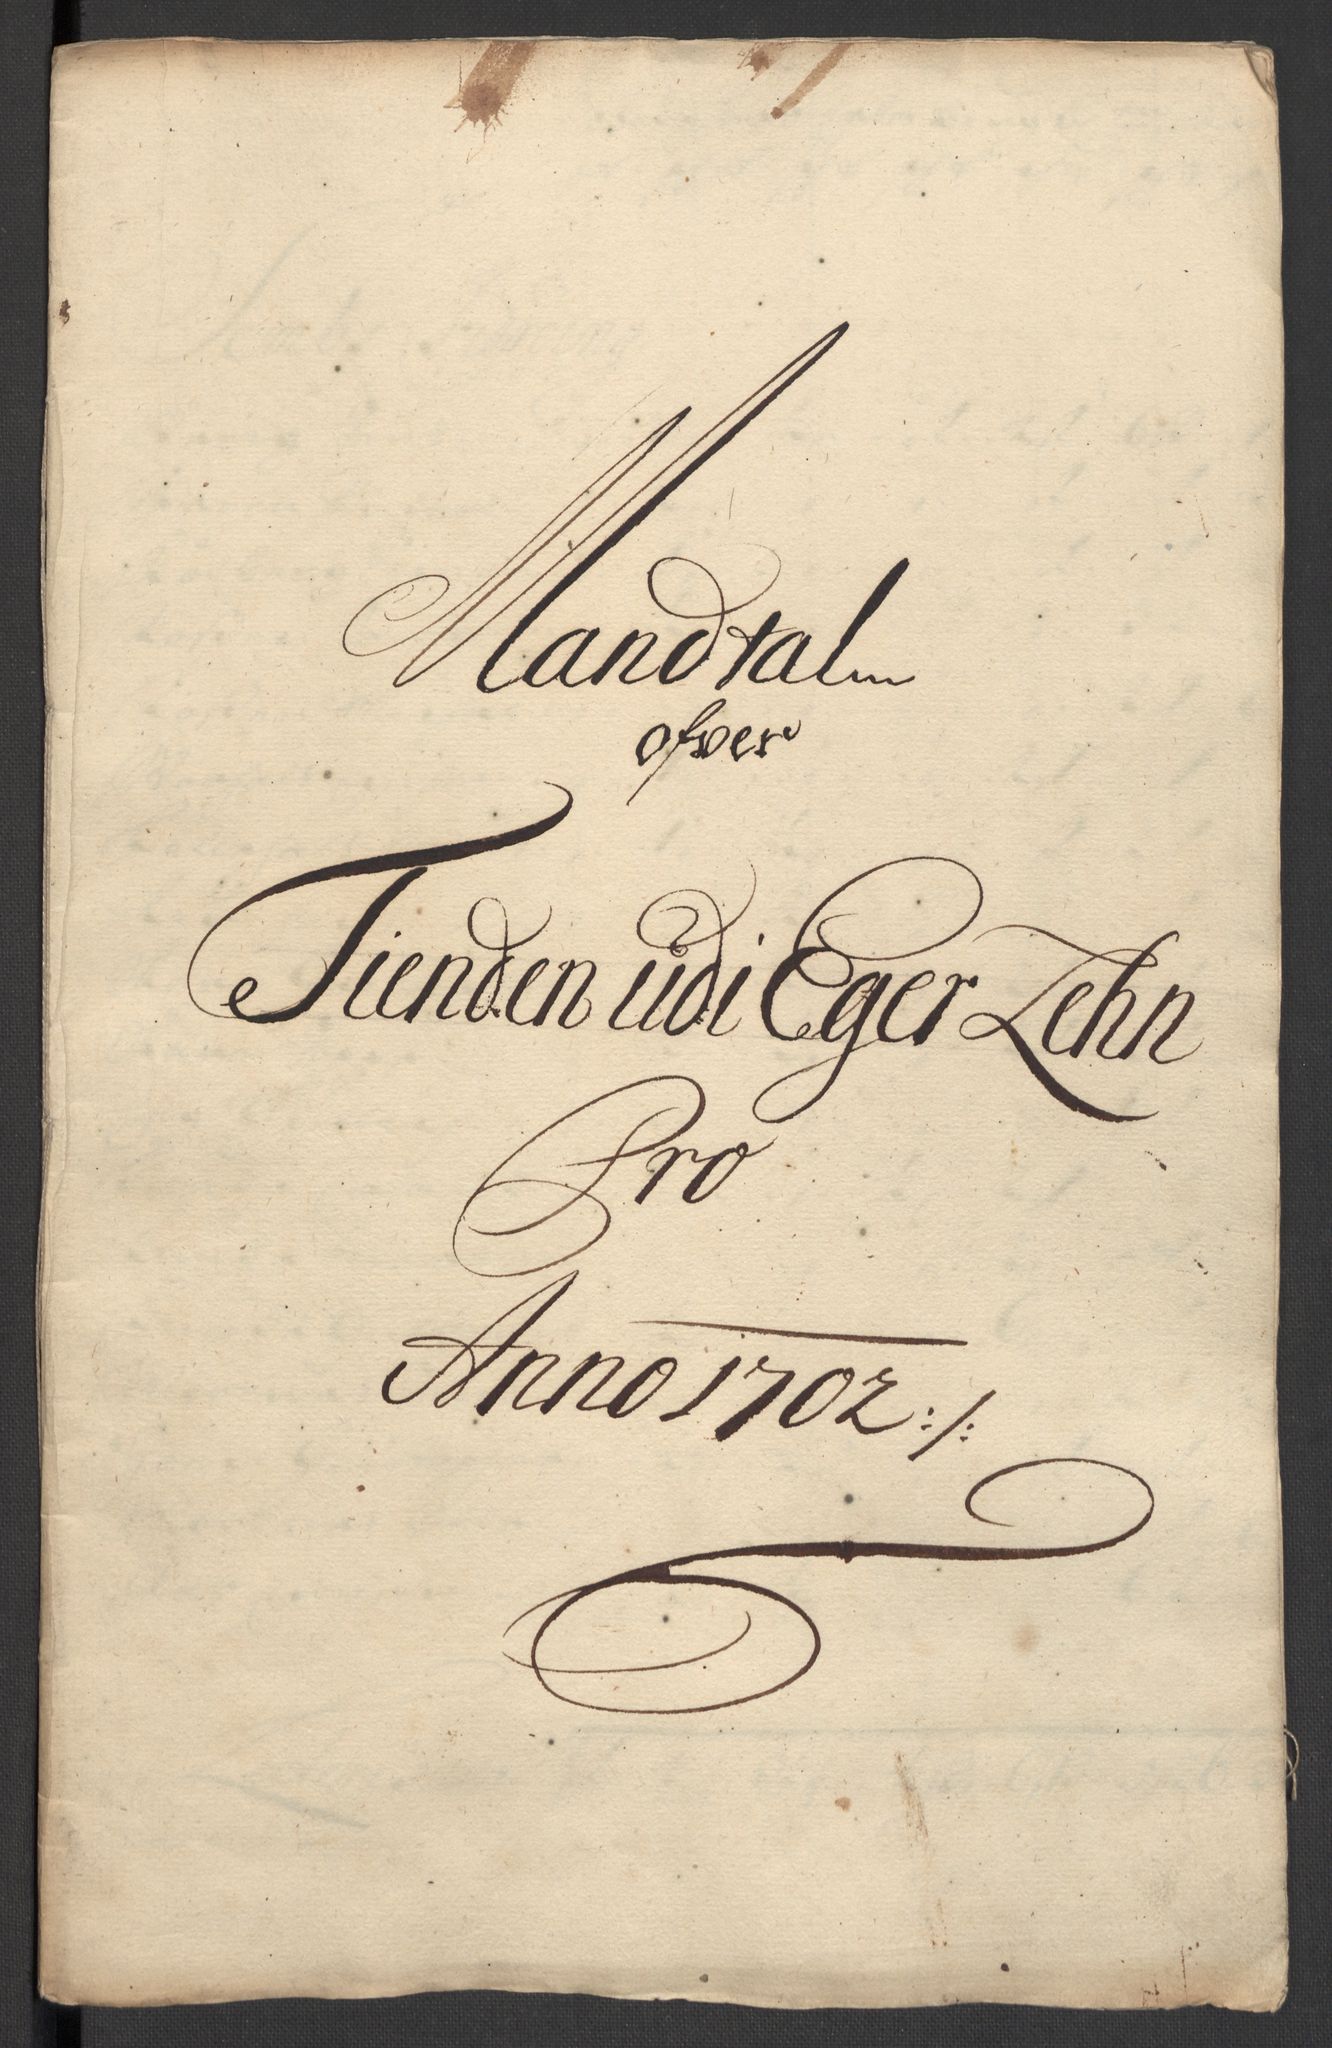 Mandtal
ofver
Tienden udi Eger Lehn
Pro
Anno 1702:/: